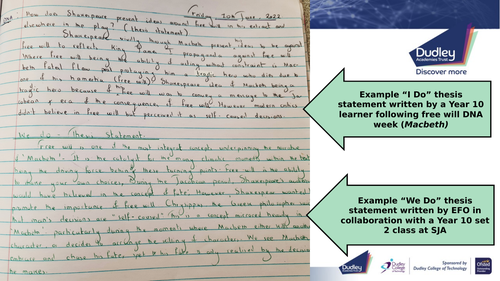 DNA
Friday 10th June, 2022
How does Shakespeare present ideas around free will in his extract and
elsewhere in the play? (Thesis statement)
Shakespeare through Macbeth present ideas to be against
free will to reflects King James propaganda against free will
Where free will being the ability of acting without constraint.
hero who dies due to
one of his hamartia (free will). Shakespeare's idea of Macbeth being a
tragic hero because of free will was to convey a message to the
of the consequence of free will. However modern critics
didn't believe in free will but perceived it as self-caused decisions.
We do - Thesis Statement
Free will is one of the most integral concepts underpinning the narrative
of 'Macbeth'. It is the catalyst for many climatic moments within the text
being the driving forces behind these turning points. Free will is the ability
to define your own choices. During the Jacobean period, Shakespeare's audience
would have believed in the concept of fate. However, Shakespeare wanted to
promote the importance of free will. Chrysippus the Greek philosopher
that man's decisions are "self-caused", this is a concept mirrored heavily in
'Macbeth', particularly during the moments where Macbeth
character, or decides to arrange the killing of characters. We see Macbeth
embrace and chase his fate, yet his fate is only realised by the decisions
he makes.
Dudley
Academies Trust
Discover more
Example “I Do” thesis
statement written by a Year 10
learner following free will DNA
week (Macbeth)
Example “We Do” thesis
statement written by EFO in
collaboration with a Year 10 set
2 class at SJA
Dudley
Academies Trust
Dudley
College of
Technology
Sponsored by
Dudley College of Technology
Ofsted